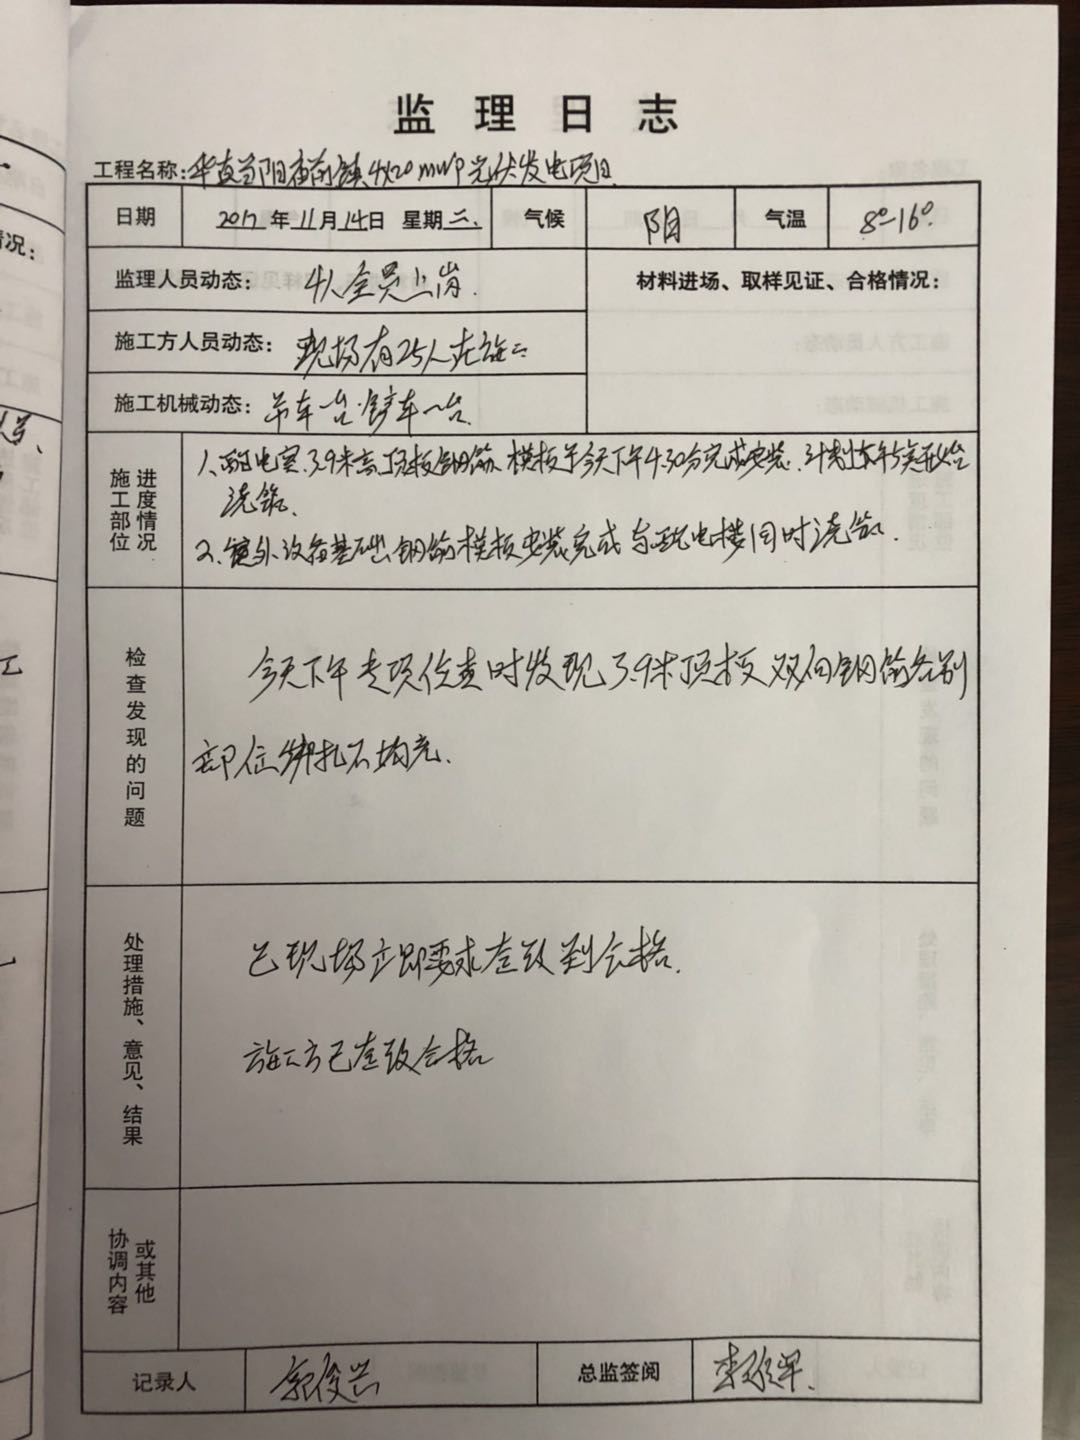 监理日志
工程名称:华直当阳庙前镇4x20mwp光伏发电项目
日期 2017年11月14日 星期二. 气候 阴 气温 8°-16°.
监理人员动态: 4人全员上岗. 材料进场、取样见证、合格情况:
施工方人员动态: 现场有25人在施工
施工机械动态: 吊车一台.铲车一台.
施工部位 进度情况
1、配电室、3.9米高顶板钢筋、模板于今天下午4.30分完成安装.计划
浇筑.
2、设备基础钢筋模板安装完成与配电楼同时浇筑.
检查发现的问题
今天下午专项检查时发现3.9米顶板双向钢筋个别
部位绑扎不均匀.
处理措施、意见、结果
已现场立即要求整改到合格.
施工方已整改合格
协调内容 或其他
记录人 总监签阅